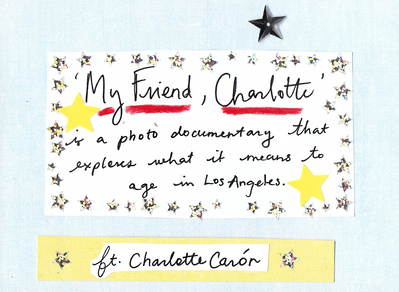 'My Friend, Charlotte'
is a photo documentary that
explores what it means to
age in Los Angeles.
ft. Charlotte Carón